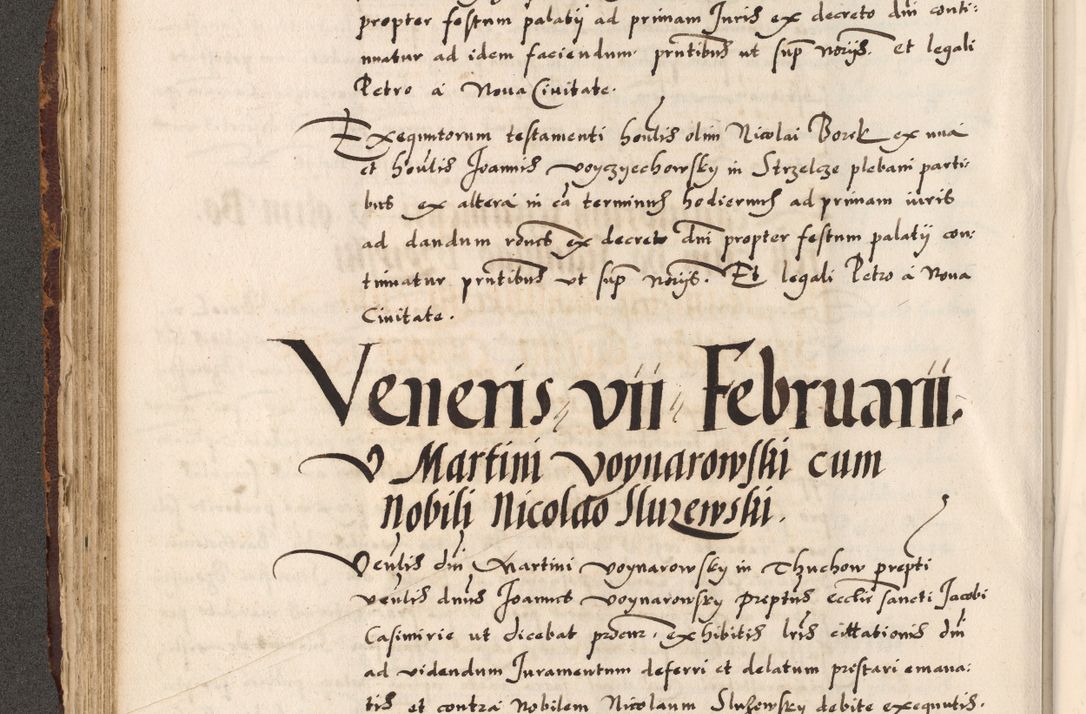 propter festum palatij ad primam Juris ex decreto dni conti:
nuatur ad idem faciendum prntibus ut sup norijs. Et legali
Petro a Nova Civitate.
Exequutorum testamenti honlis olim Nicolai Borek ex una
et honlis Joannis Voyczyechowsky in Strzelcze plebani parti:
bus ex altera in ca terminus hodiernus ad primam iuris
ad dandum roncs ex decreto dni propter festum palatij con:
tinuatur prntibus ut sup norijs. Et legali Petro a Nova
Civitate.
Veneris vii Februarii.
V Martini Voynarowski cum
Nobili Nicolao Sluzewski.
Venlis dni Martini Voynarowsky in Thuchow prepti
venlis dnus Joannes Voynarowsky preptus ecclie sancti Jacobi
Casimirie ut dicebat procur. exhibitis lris citationis dni
ad videndum Juramentum deferri et delatum prestari emana:
tis et contra Nobilem Nicolaum Sluzowsky debite exequutis.